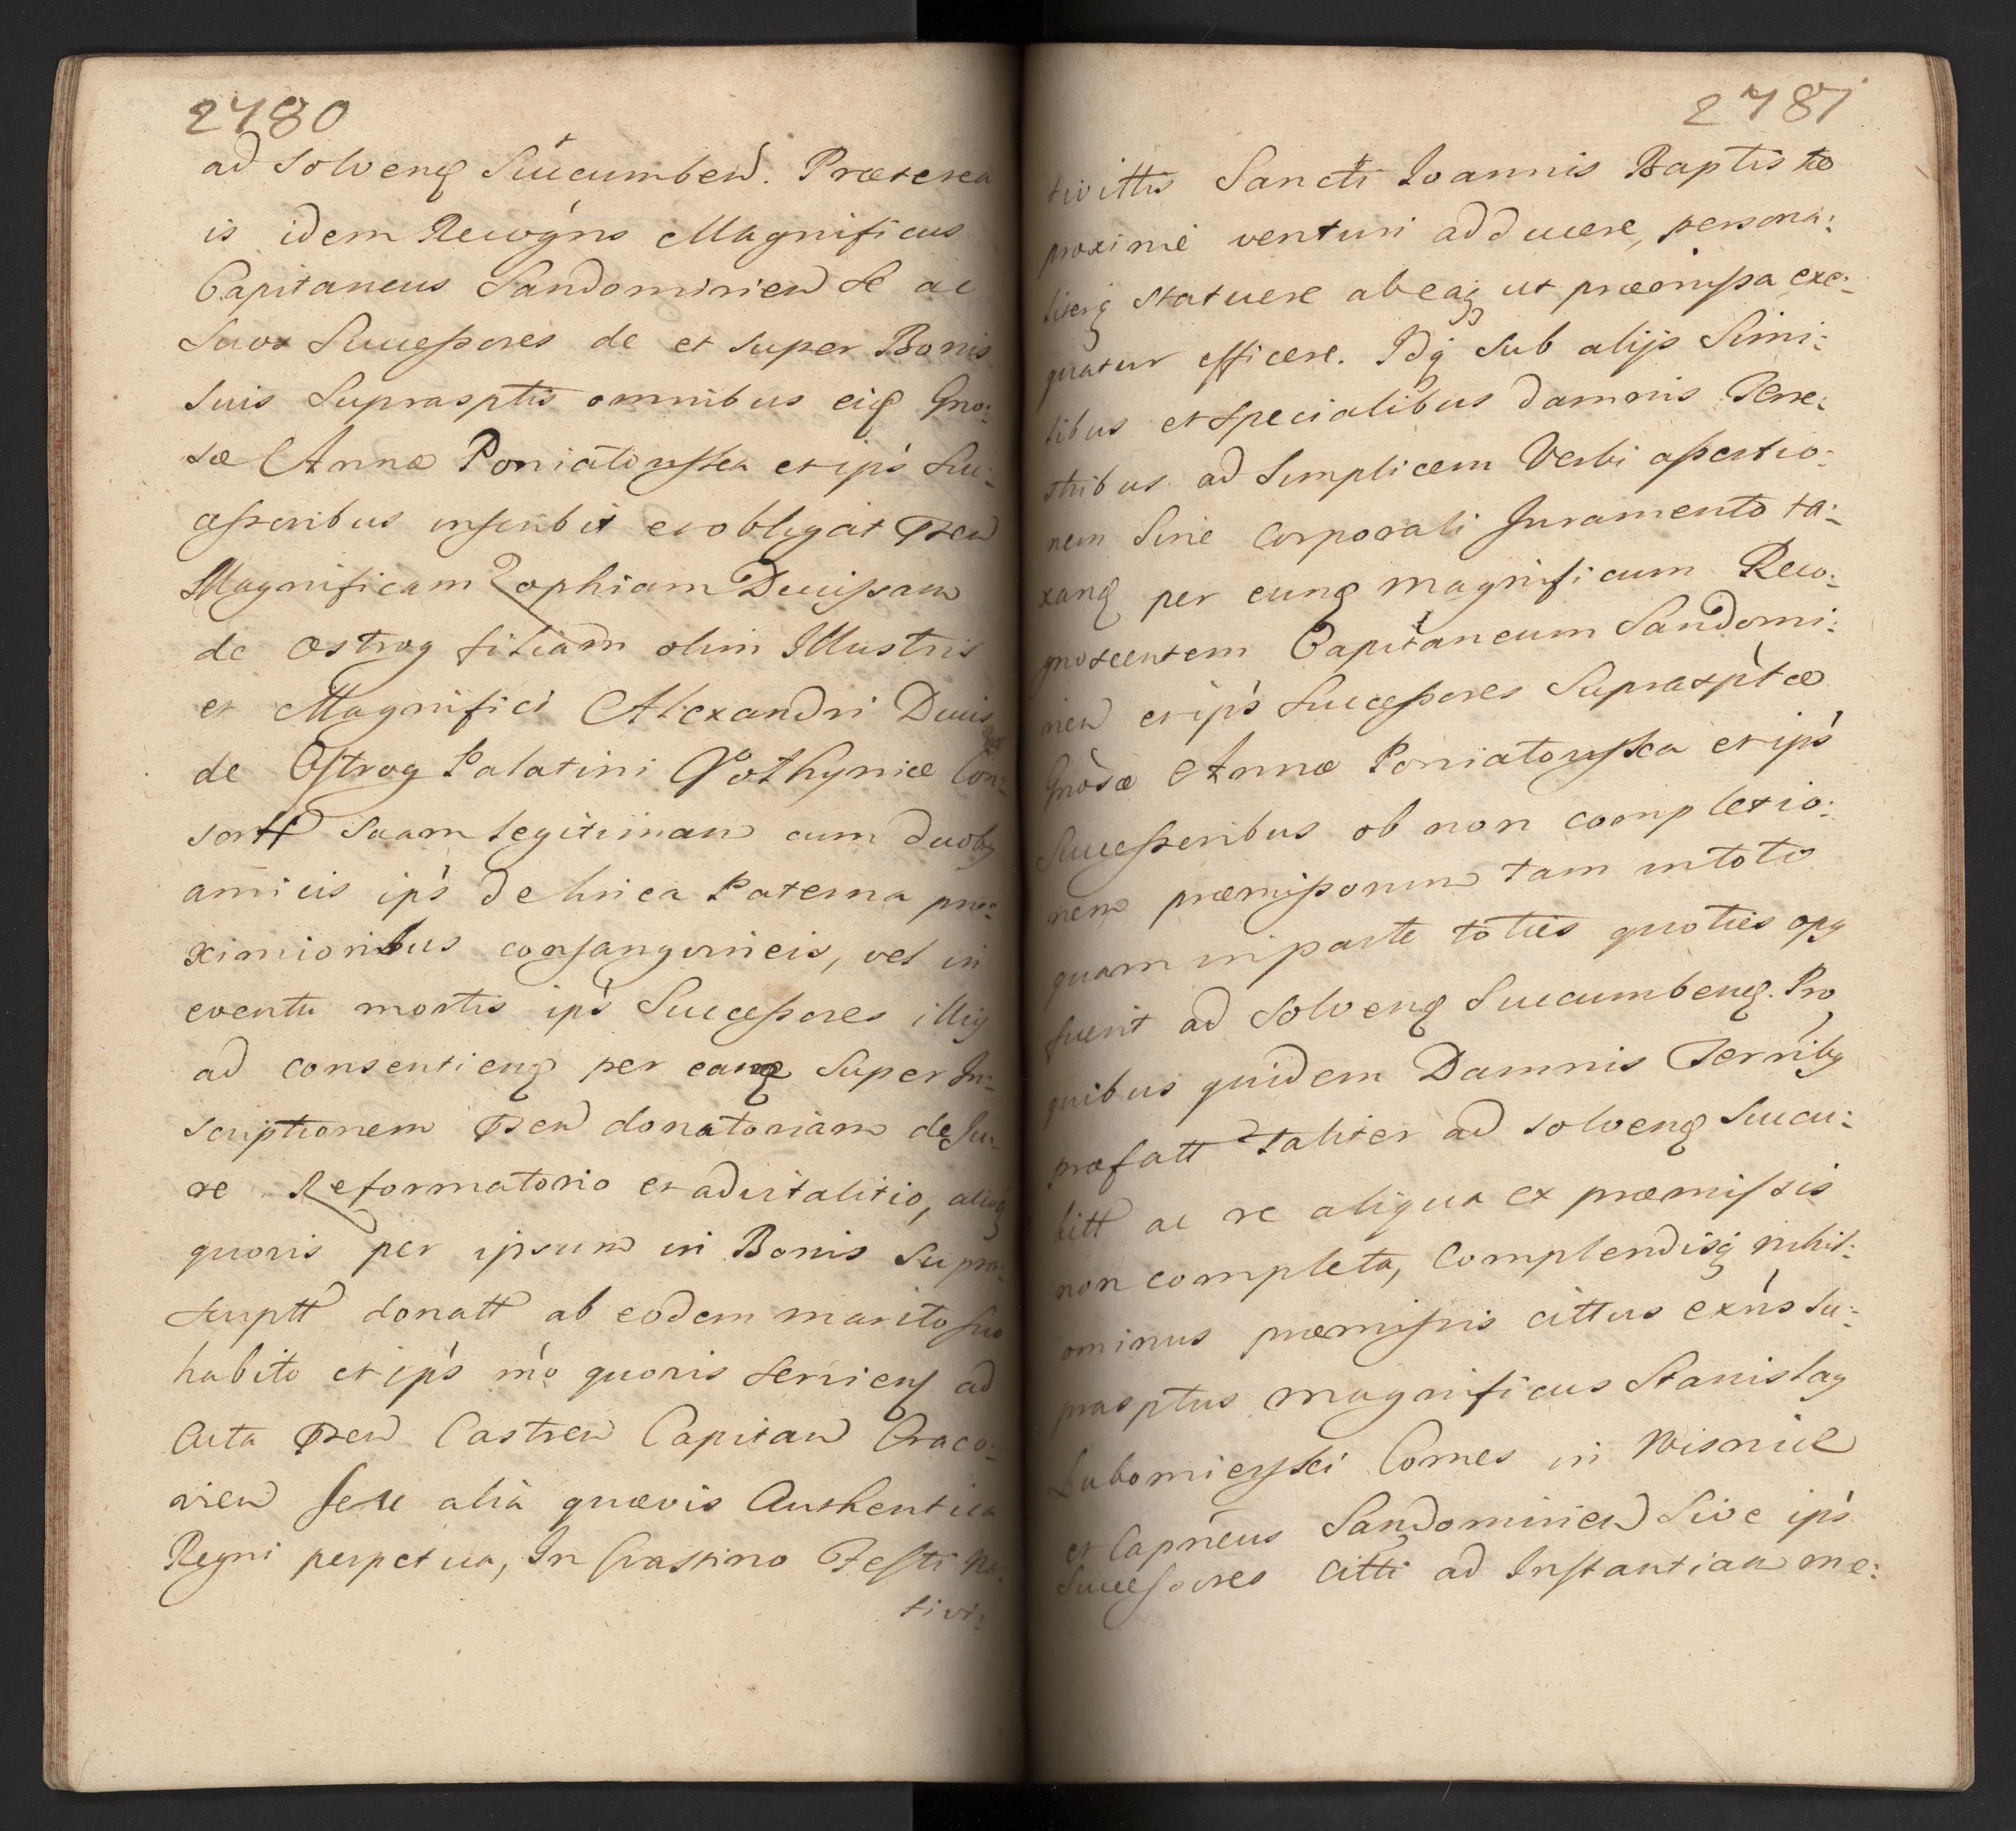 2780
ad Solvenq Succumben. Præterea
is idem Recogns Magnificus
Capitaneus Sandomirien se ac
Suos Successores de et super Bonis
suis Suprasptis omnibus eiq Gno:
sæ Annæ Poniatowska et ips Suc:
cessoribus inscribit et obligat Pren
Magnificam Zophiam Ducissam
de Ostrog filiam olim Illustris
et Magnifici Alexandri Ducis
de Ostrog Palatini Volhyniæ Con:
sortt Suam legitimam cum duobq
amicis ips de linea Paterna pro:
ximioribus consangvineis, vel in
eventu mortis ips Successores illiq
ad consentienq per eanq Super In:
scriptionem Pren donatoriam de Ju:
re Reformatorio et advitalitio, aliisq
quovis per ipsum in Bonis Supra:
scriptt donatt ab eodem marito suo
habito et ips mo quovis Servienq ad
Acta Pren Castren Capitan Craco:
vien seu alia quævis Authentica
Regni perpetua, In Crastino Festi Na:
tivi:
2781
tivittis Sancti Ioannis Baptistæ
proxime venturi adducere, persona:
literq Statuere ab eaq ut præmissa exe:
quatur efficere. Idq Sub alijs Simi:
libus et Specialibus damnis Terre:
stribus ad Simplicem Verbi assertio:
nem Sine Corporali Juramento ta:
xanq per eunq magnificum Reco:
gnoscentem Capitaneum Sandomi:
rien et ips Successores Suprasptæ
Gnosæ Annæ Poniatowska et ips
Successoribus ob non completio:
nem præmissorum tam in toto
quam in parte toties quoties opq
fuerit ad Solvenq Succumbenq. Pro
quibus quidem Damnis Terribq
præfatt taliter ad solvenq Succu:
bitt ac re aliqua ex præmissis
non completa, Complendisq nihil:
ominus præmissis cittus exns Su:
prasptus magnificus Stanislaq
Lubomierski Comes in Wisnicz
et Capneus Sandomirien Sive ips
Successores citti ad Instantiam me: